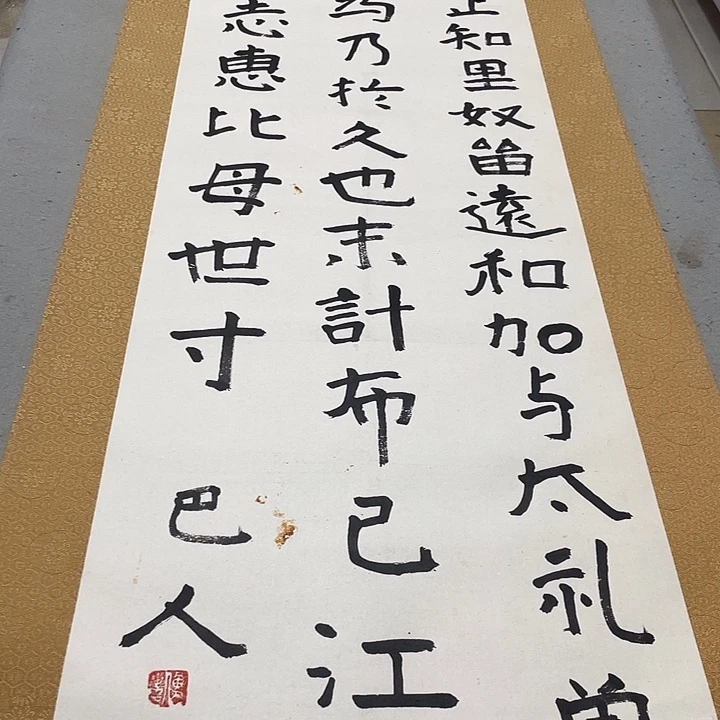 止知里奴畄遠和加与太礼曽
為乃於久也末計布己江
志惠比母世寸
巴人